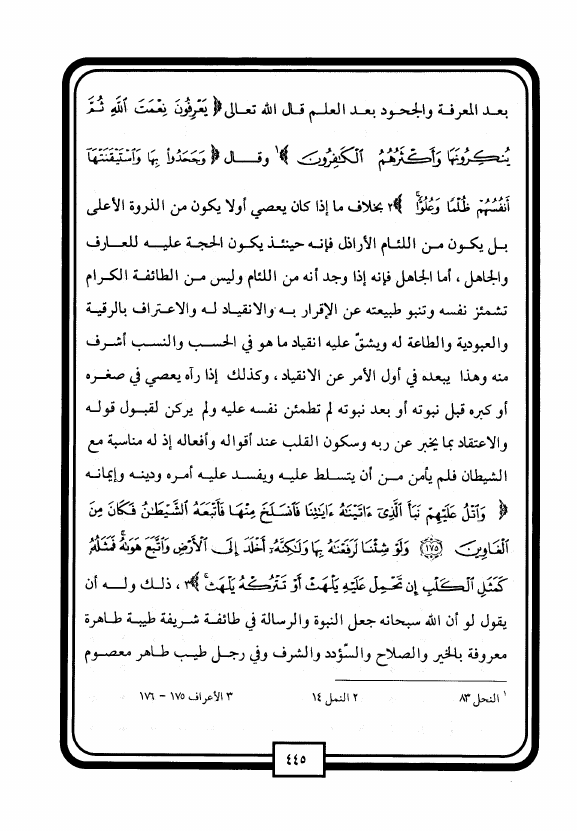 بعد المعرفة والجحود بعد العلم قال الله تعالى ﴿ يَعْرِفُونَ نِعْمَتَ اللَّهِ ثُمَّ
يُنكِرُونَهَا وَأَكْثَرُهُمُ الْكَافِرُونَ ﴾١ وقال ﴿ وَجَحَدُوا بِهَا وَاسْتَيْقَنَتْهَا
أَنفُسُهُمْ ظُلْمًا وَعُلُوًّا ﴾٢ بخلاف ما إذا كان يعصي أولا يكون من الذروة الأعلى
بل يكون من اللئام الأراذل فإنه حينئذ يكون الحجة عليه للعارف
والجاهل ، أما الجاهل فإنه إذا وجد أنه من اللئام وليس من الطائفة الكرام
تشمئز نفسه وتنبو طبيعته عن الإقرار به والانقياد له والاعتراف بالرقية
والعبودية والطاعة له ويشقّ عليه انقياد ما هو في الحسب والنسب أشرف
منه وهذا يبعده في أول الأمر عن الانقياد ، وكذلك إذا رآه يعصي في صغره
أو كبره قبل نبوته أو بعد نبوته لم تطمئن نفسه عليه ولم يركن لقبول قوله
والاعتقاد بما يخبر عن ربه وسكون القلب عند أقواله وأفعاله إذ له مناسبة مع
الشيطان فلم يأمن من أن يتسلط عليه ويفسد عليه أمره ودينه وإيمانه
﴿ وَاتْلُ عَلَيْهِمْ نَبَأَ الَّذِي ءَاتَيْنَاهُ ءَايَاتِنَا فَانسَلَخَ مِنْهَا فَأَتْبَعَهُ الشَّيْطَانُ فَكَانَ مِنَ
الْغَاوِينَ (١٧٥) وَلَوْ شِئْنَا لَرَفَعْنَاهُ بِهَا وَلَكِنَّهُ أَخْلَدَ إِلَى الْأَرْضِ وَاتَّبَعَ هَوَاهُ فَمَثَلُهُ
كَمَثَلِ الْكَلْبِ إِن تَحْمِلْ عَلَيْهِ يَلْهَثْ أَوْ تَتْرُكْهُ يَلْهَث ﴾٣ ، ذلك وله أن
يقول لو أن الله سبحانه جعل النبوة والرسالة في طائفة شريفة طيبة طاهرة
معروفة بالخير والصلاح والسّؤدد والشرف وفي رجل طيب طاهر معصوم
١ النحل ٨٣ ٢ النمل ١٤ ٣ الأعراف ١٧٥ – ١٧٦
٤٤٥